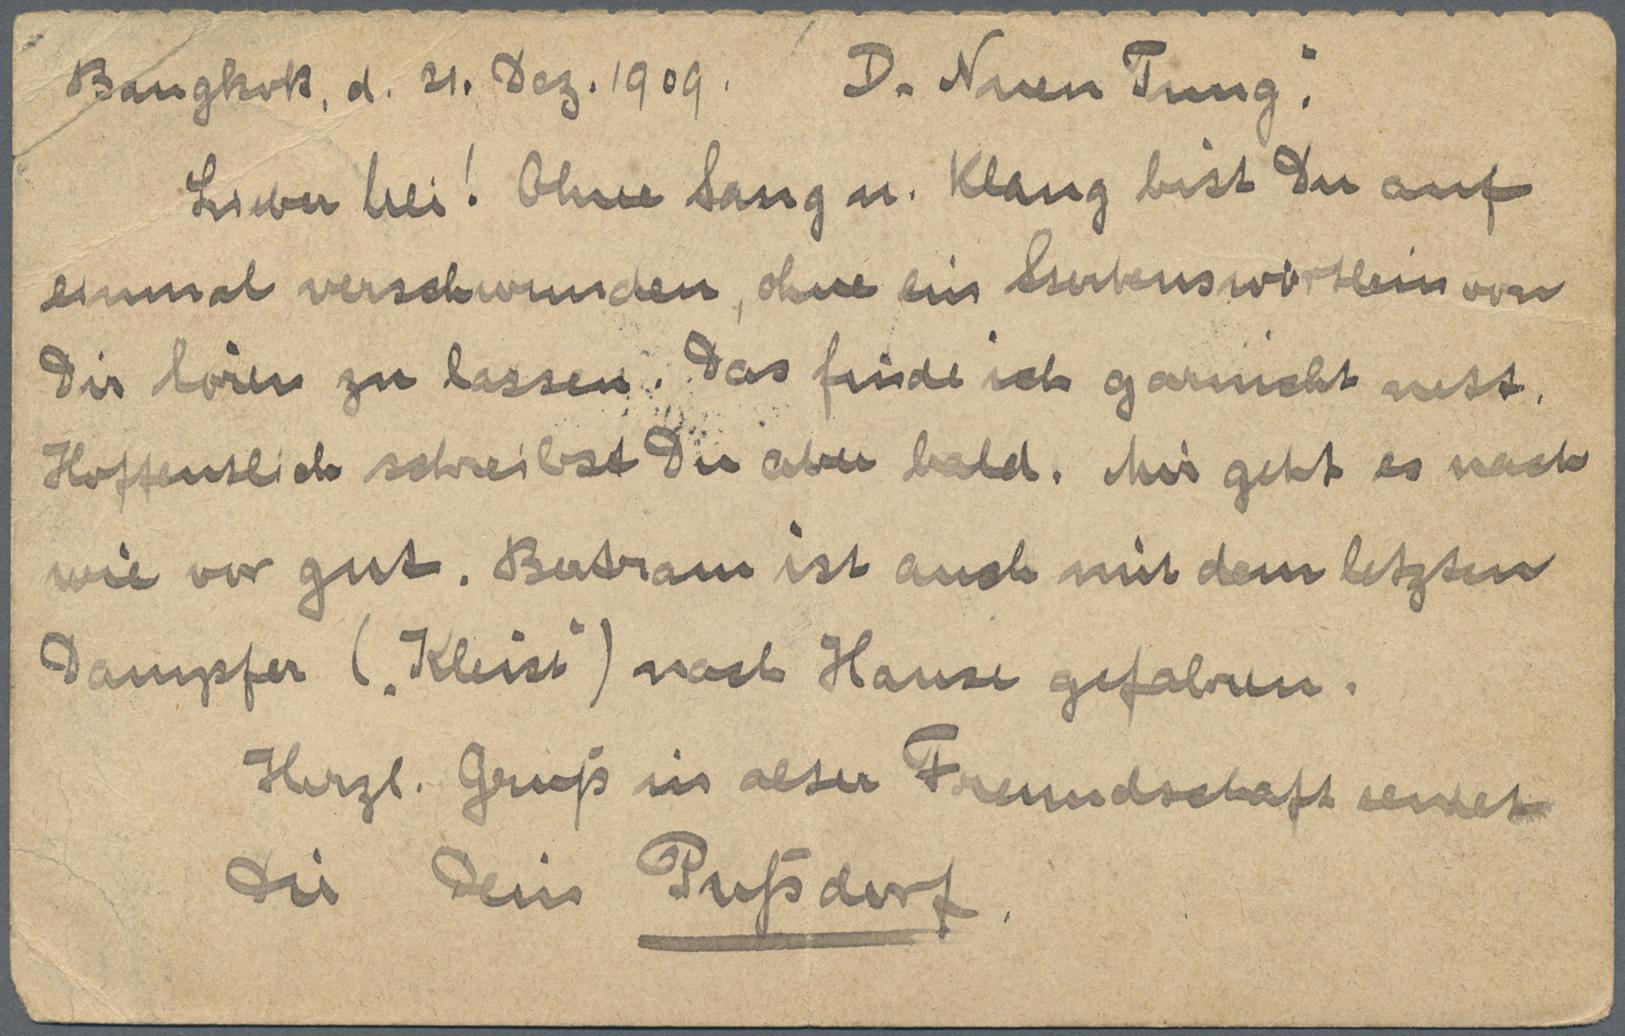 Bangkok, d. 21. Dez. 1909. D. "Nuen Tung".
Lieber Uli! Ohne Sang u. Klang bist Du auf
einmal verschwunden, ohne ein Sterbenswörtlein von
Dir hören zu lassen. Das finde ich garnicht nett.
Hoffentlich schreibst Du aber bald. Mir geht es nach
wie vor gut. Bertram ist auch mit dem letzten
Dampfer („Kleist“) nach Hause gefahren.
Herzl. Gruß in alter Freundschaft sendet
Dir Dein Pußdorf.